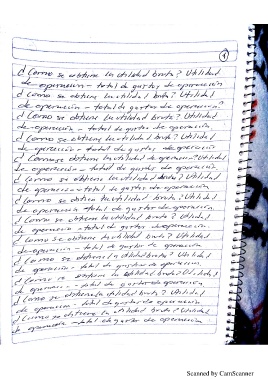 1
¿Como se obtiene la utilidad bruta? Utilidad
de-operación-total de gastos de operación
¿Como se obtiene la utilidad bruta? Utilidad
de operación-total de gastos de operación?
¿Como se obtiene la utilidad bruta? Utilidad
de-operación-total de gastos de operación
¿Como se obtiene la utilidad bruta? Utilidad
de-operación-total de gastos de operación
¿Como se obtiene la utilidad de operación? Utilidad
de operación-total de gastos de operación
¿Como se obtiene la utilidad bruta? Utilidad
de operación-total de gastos de operación
¿Como se obtiene la utilidad bruta? Utilidad
de operación-total de gastos de operación
¿Como se obtiene la utilidad bruta? Utilidad
de-operación-total de gastos de operación
¿Como se obtiene la utilidad bruta? Utilidad
de-operación-total de gastos de operación
¿Como se obtiene la utilidad bruta? Utilidad
de operación-total de gastos de operación
¿Como se obtiene la utilidad bruta? Utilidad
de operación-total de gastos de operación
¿Como se obtiene la utilidad bruta? Utilidad
de operación-total de gastos de operación
¿Como se obtiene la utilidad bruta? Utilidad
de operación-total de gastos de operación
Scanned by CamScanner